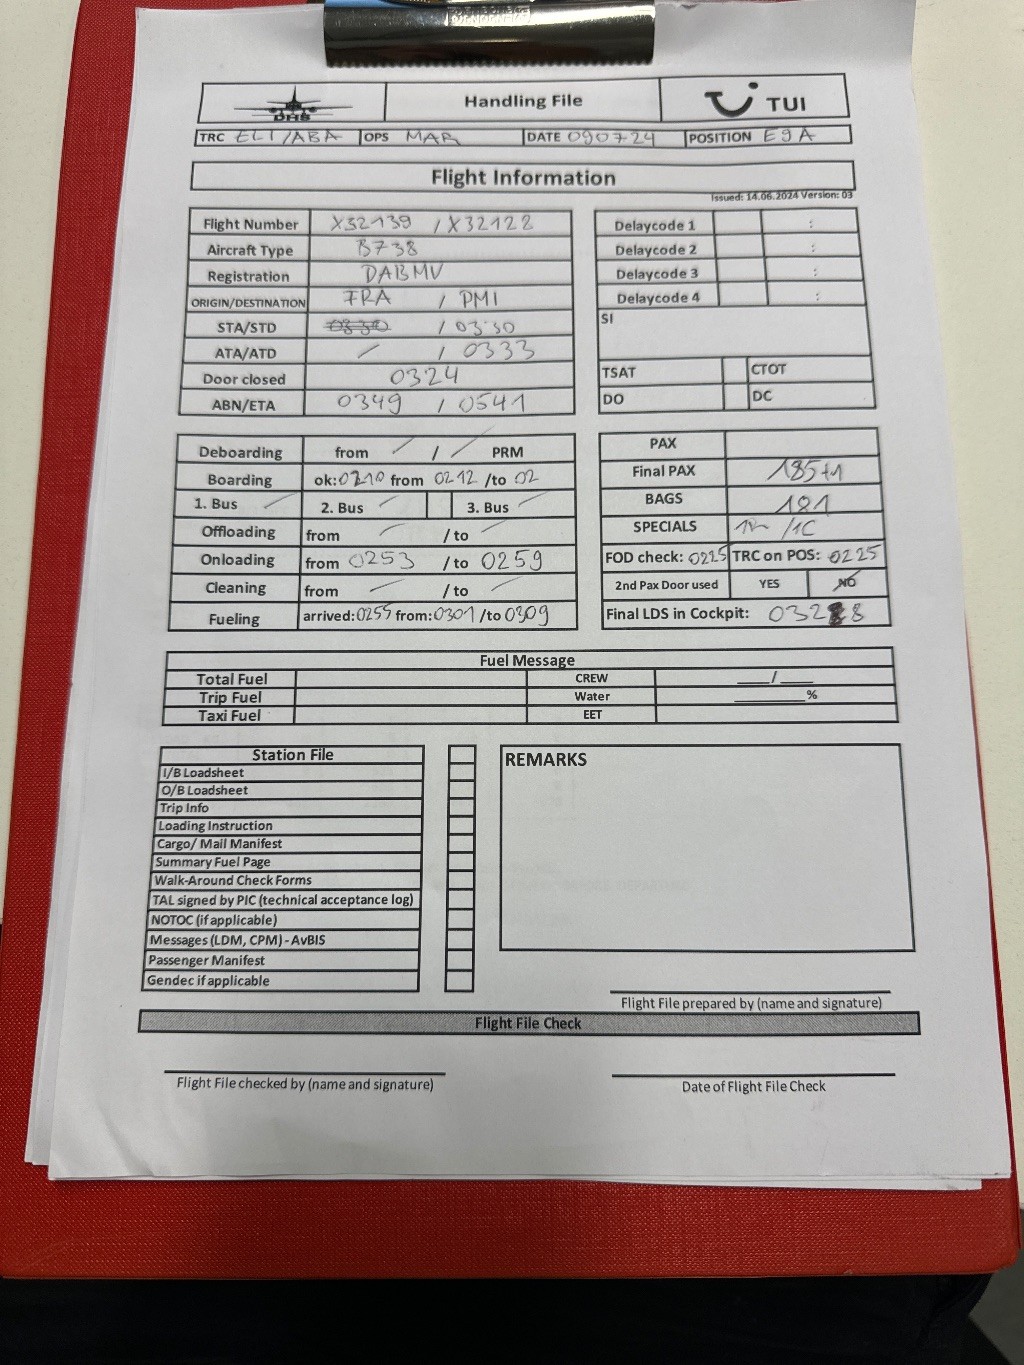 DHS
Handling File
TUI
TRC ELI/ABA OPS MAR DATE 090724 POSITION E9A
Flight Information
Issued: 14.06.2024 Version: 03
Flight Number X32139 / X32122
Aircraft Type B738
Registration DABMV
ORIGIN/DESTINATION FRA / PMI
STA/STD 0330 / 03:30
ATA/ATD / / 0333
Door closed 0324
ABN/ETA 0349 / 0541
Delaycode 1 :
Delaycode 2 :
Delaycode 3 :
Delaycode 4 :
SI
TSAT CTOT
DO DC
Deboarding from / / / PRM
Boarding ok:0210 from 0212 /to 02
1. Bus / 2. Bus / 3. Bus /
Offloading from / /to /
Onloading from 0253 /to 0259
Cleaning from / /to /
Fueling arrived:0255 from:0301 /to 0309
PAX
Final PAX 185+1
BAGS 181
SPECIALS /1C
FOD check: 0225 TRC on POS: 0225
2nd Pax Door used YES NO
Final LDS in Cockpit: 0328
Fuel Message
Total Fuel CREW ___/___
Trip Fuel Water ______%
Taxi Fuel EET
Station File
I/B Loadsheet
O/B Loadsheet
Trip Info
Loading Instruction
Cargo/ Mail Manifest
Summary Fuel Page
Walk-Around Check Forms
TAL signed by PIC (technical acceptance log)
NOTOC (if applicable)
Messages (LDM, CPM) - AvBIS
Passenger Manifest
Gendec if applicable
REMARKS
Flight File prepared by (name and signature)
Flight File Check
Flight File checked by (name and signature)
Date of Flight File Check